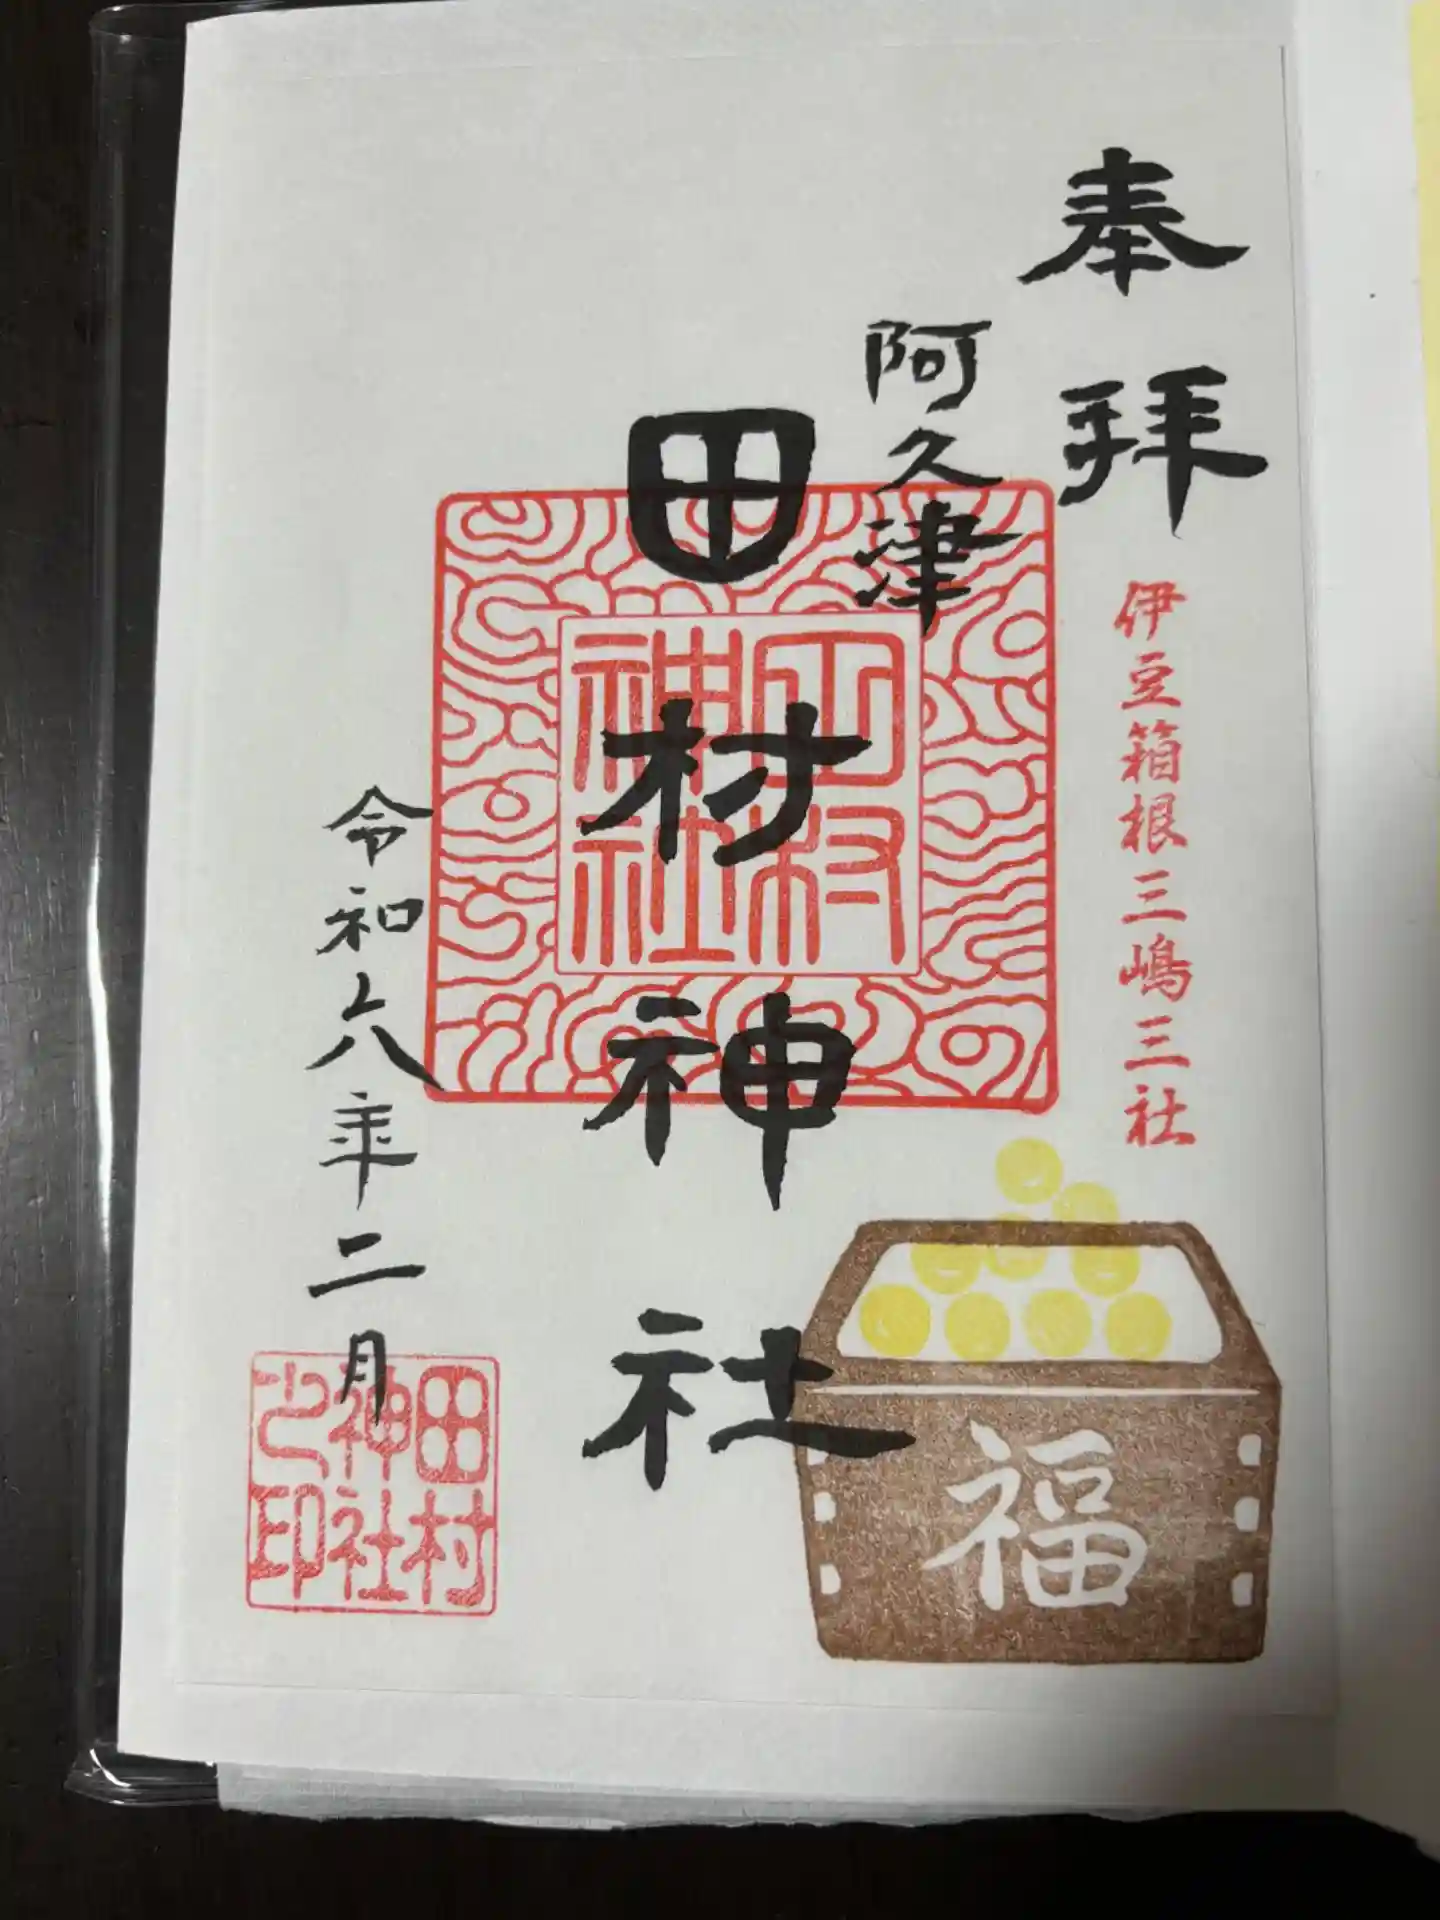 奉拝
伊豆箱根三嶋三社
阿久津
田村神社
田村神社
令和六年二月
田村神社之印
福